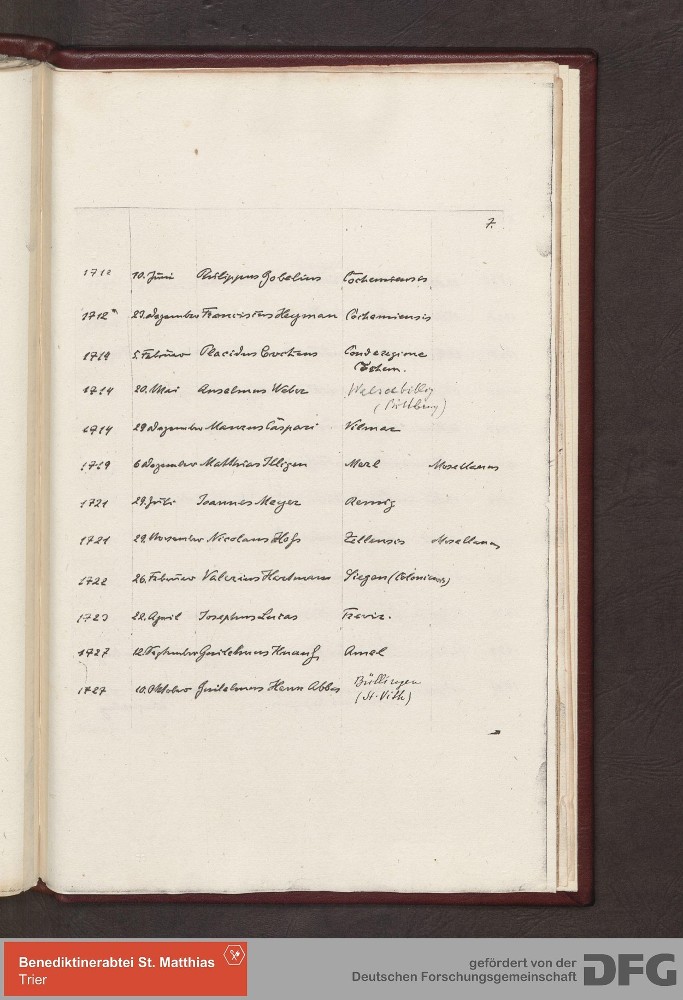 7.
1712 10. Juni Philippus Gobelius Cochemiensis
1712 27. Dezember Franciscus Heyman Cochemiensis
1719 5. Februar Placidus Cochem.
1714 20. Mai Anselmus Weber Welschbillig
(Bittburg)
1714 29 Dezember Marcus Caspari Vilmar
1719 6 Dezember Matthias Illigen Merl Mosellanus
1721 29. Juli Joannes Meyer
1721 29. November Nicolaus Hoss Zellensis Mosellanus
1722 26. Februar Valerius Hartmann Siegen (Coloniensis)
1723 22. April Josephus Lucas Trevir.
1727 12. September Guilelmus Knauf Amel
1727 10. Oktober Guilelmus Henn Abbas Büllingen
(St. Vith)
Benediktinerabtei St. Matthias
Trier
gefördert von der
Deutschen Forschungsgemeinschaft DFG